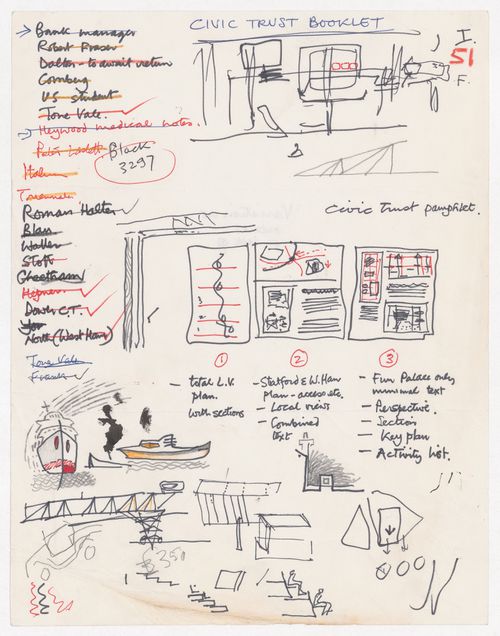 CIVIC TRUST BOOKLET
→ Bank manager
Robert Fraser
Dalton - to await return
Cornberg
US student
Tone Vale.
Heywood medical notes.
Black
3297
Italian
I.
51
F.
Roman Halter
Blan
Waller
Stoff
Cheetham
North (West Ham)
Tone Vale
Civic Trust pamphlet.
1
2
3
- total L.V.
plan.
with sections
- Statford & W. Ham
plan - access etc.
- Local views
- Combined
text
- Fun Palace only
minimal text
- Perspective.
- Section
- Key plan
- Activity list.